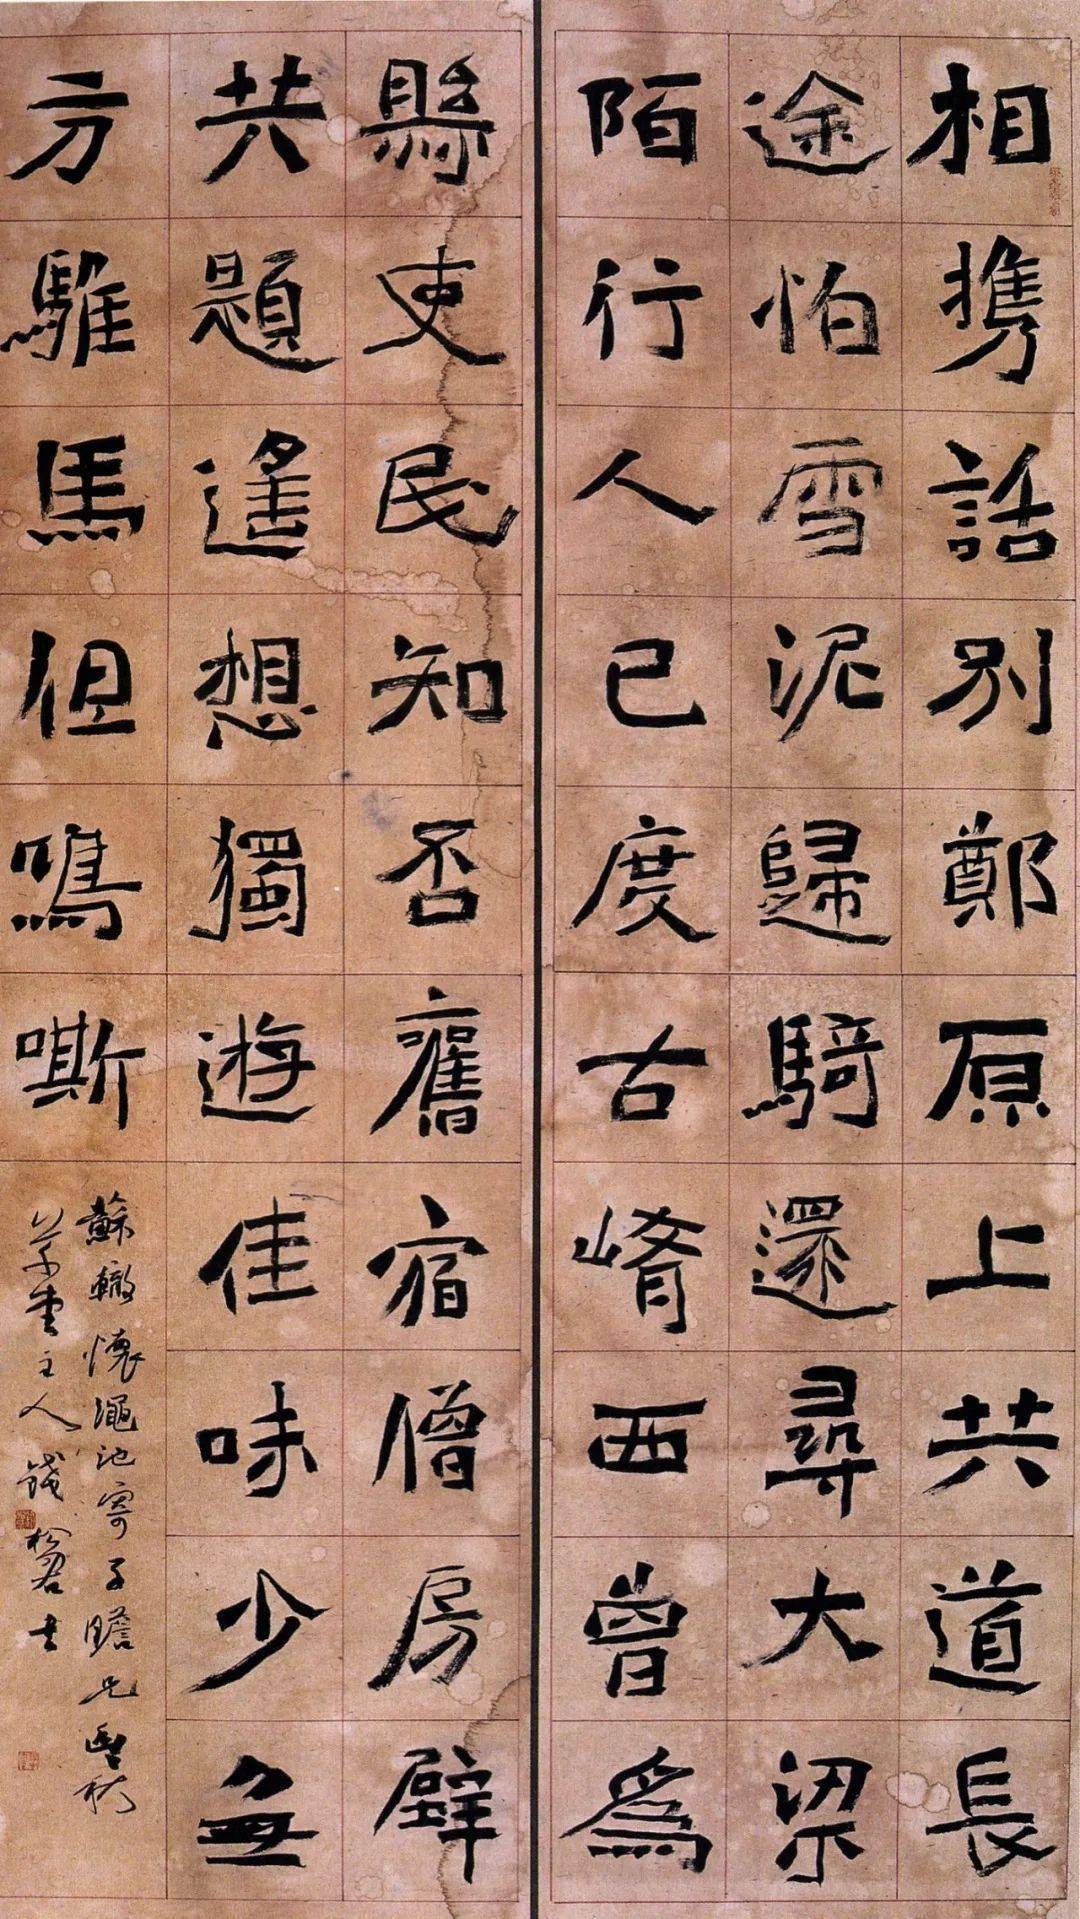 相攜話別鄭原上共道長
途怕雪泥歸騎還尋大梁
陌行人已度古崤西曾為
縣吏民知否舊宿僧房壁
共題遙想獨遊佳味少無
方騅馬但鳴嘶
蘇轍懷澠池寄子瞻兄
主人錢